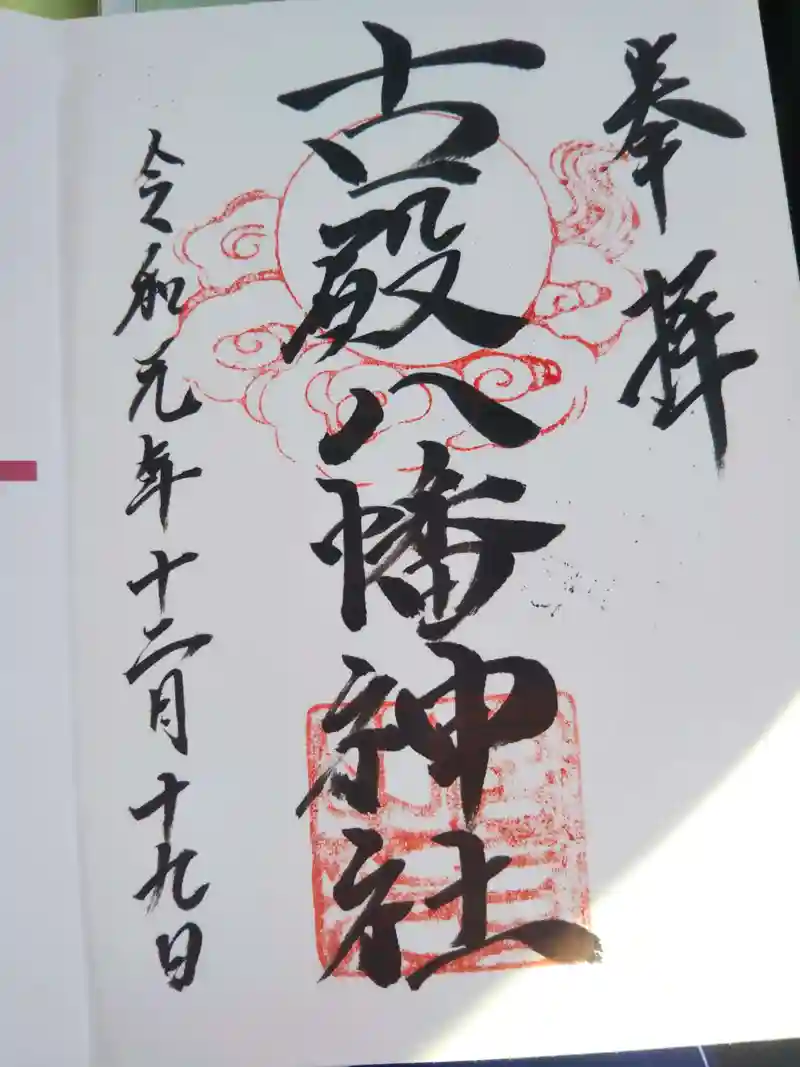 奉拝
古殿八幡神社
令和元年十二月十九日